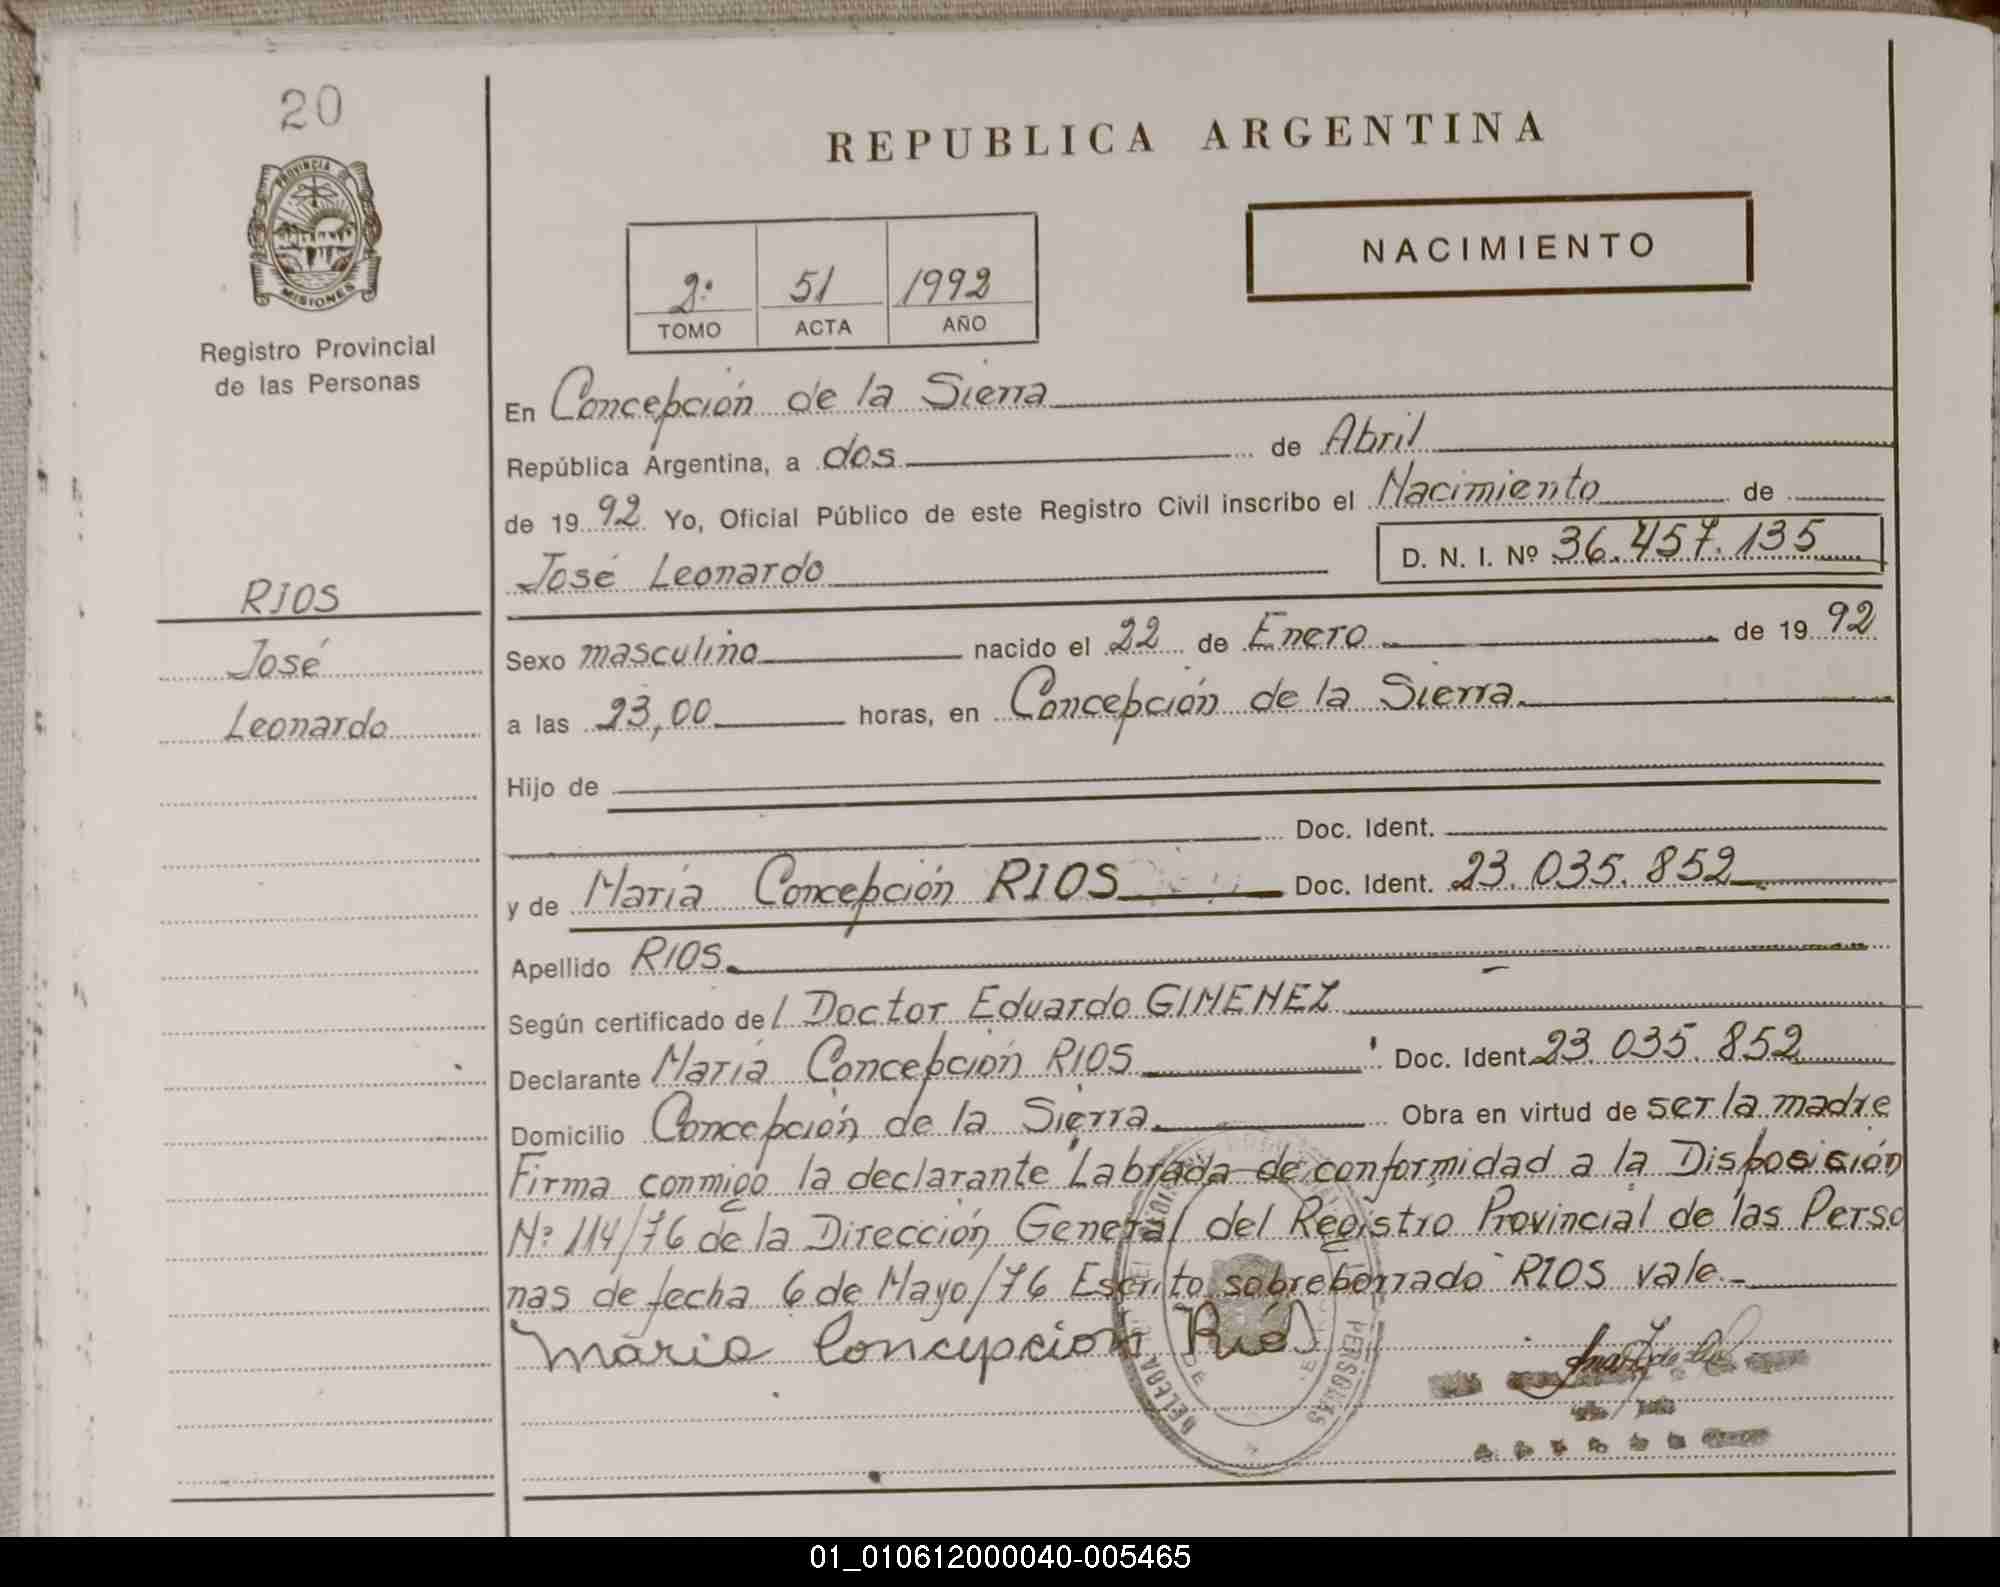 20
PROVINCIA DE
MISIONES
Registro Provincial
de las Personas
RIOS
José
Leonardo
REPUBLICA ARGENTINA
NACIMIENTO
2º 51 1992
TOMO ACTA AÑO
En Concepción de la Sierra
República Argentina, a dos de Abril
de 19 92 Yo, Oficial Público de este Registro Civil inscribo el Nacimiento de
José Leonardo D. N. I. Nº 36.457.135
Sexo masculino nacido el 22 de Enero de 19 92
a las 23,00 horas, en Concepción de la Sierra
Hijo de
Doc. Ident.
y de María Concepción RIOS Doc. Ident. 23.035.852
Apellido RIOS
Según certificado del Doctor Eduardo GIMENEZ
Declarante María Concepción RIOS Doc. Ident. 23.035.852
Domicilio Concepción de la Sierra Obra en virtud de ser la madre
Firma conmigo la declarante Labrada de conformidad a la Disposición
Nº 114/76 de la Dirección General del Registro Provincial de las Perso
nas de fecha 6 de Mayo/76 Escrito sobreborrado RIOS vale.-
Maria Concepcion Rios
PERSONAS
01_010612000040-005465